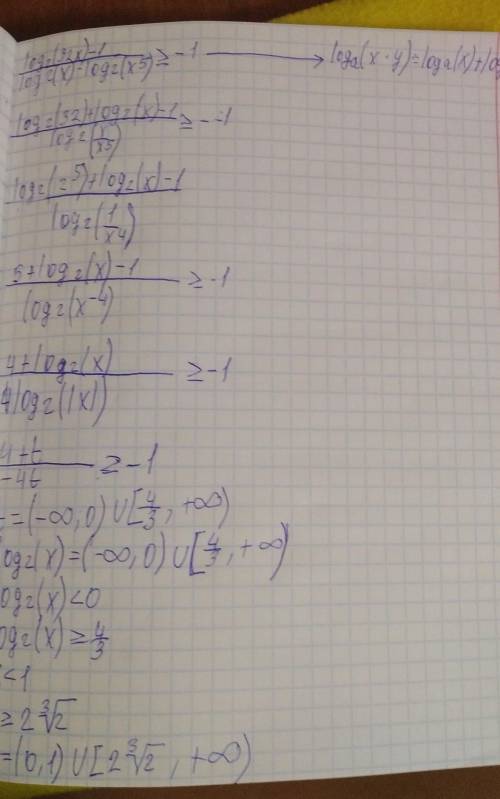 log₂(32x)-1 / log₂(x)-log₂(x5) ≥ -1 → logₐ(x·y)=logₐ(x)+log
log₂(32)+log₂(x)-1 / log₂(x/x5) ≥ -1
log₂(2⁵)+log₂(x)-1 / log₂(1/x4)
5+log₂(x)-1 / log₂(x⁻⁴) ≥ -1
4+log₂(x) / 4log₂(|x|) ≥ -1
4+t / -4t ≥ -1
=(-∞,0)∪[4/3, +∞)
log₂(x)=(-∞,0)∪[4/3, +∞)
log₂(x)<0
log₂(x)≥4/3
<1
≥2∛2
=(0,1)∪[2∛2, +∞)